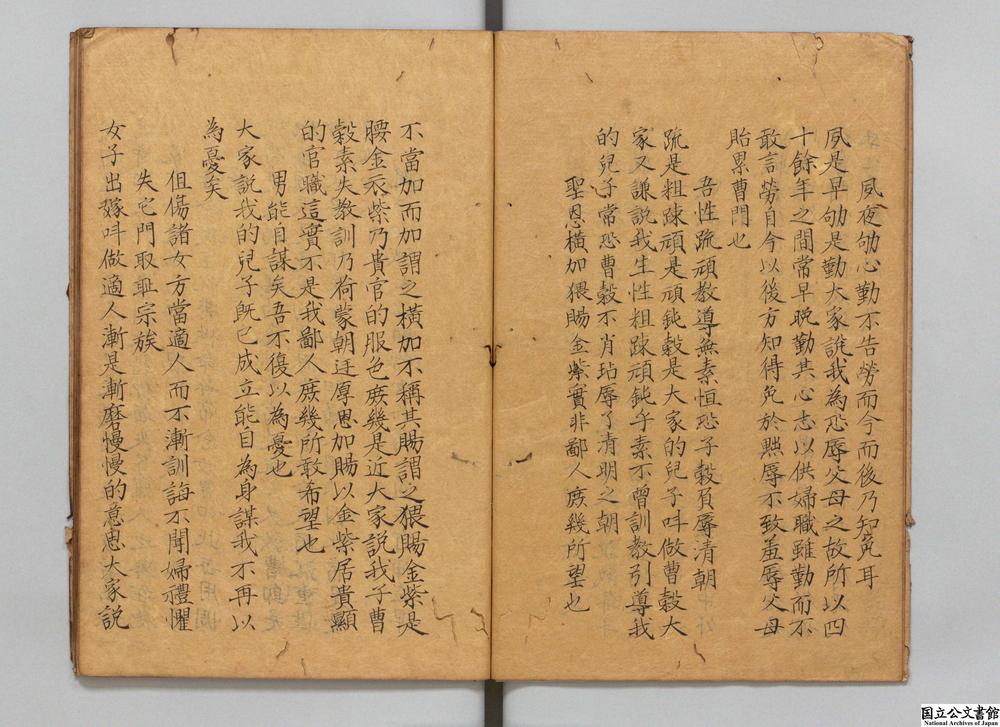 夙夜劬心勤不告勞而今而後乃知免耳
夙是早劬是勤大家說我為恐辱父母之故所以四
十餘年之間常早晚勤其心志以供婦職雖勤而不
敢言勞自今以後方知得免於黜辱不致羞辱父母
貽累曹門也
吾性疏頑教導無素恒恐子穀負辱清朝
疏是粗疎頑是頑鈍穀是大家的兒子呌做曹穀大
家又謙說我生性粗疎頑鈍乎素不曾訓教引導我
的兒子當恐曹穀不肖玷辱了清明之朝
聖恩橫加猥賜金紫實非鄙人庻幾所望也
不當加而加謂之橫加不稱其賜謂之猥賜金紫是
腰金衣紫乃貴官的服色庻幾是近大家說我子曹
穀素失教訓乃荷蒙朝廷厚恩加賜以金紫居貴顯
的官職這實不是我鄙人庻幾所敢希望也
男能自謀矣吾不復以為憂也
大家說我的兒子既已成立能自為身謀我不再以
為憂矣
伹傷諸女方當適人而不漸訓誨不聞婦禮懼
失它門取恥宗族
女子出嫁呌做適人漸是漸磨慢慢的意思大家說
国立公文書館
National Archives of Japan